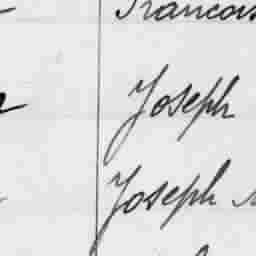 Francois
Joseph
Joseph